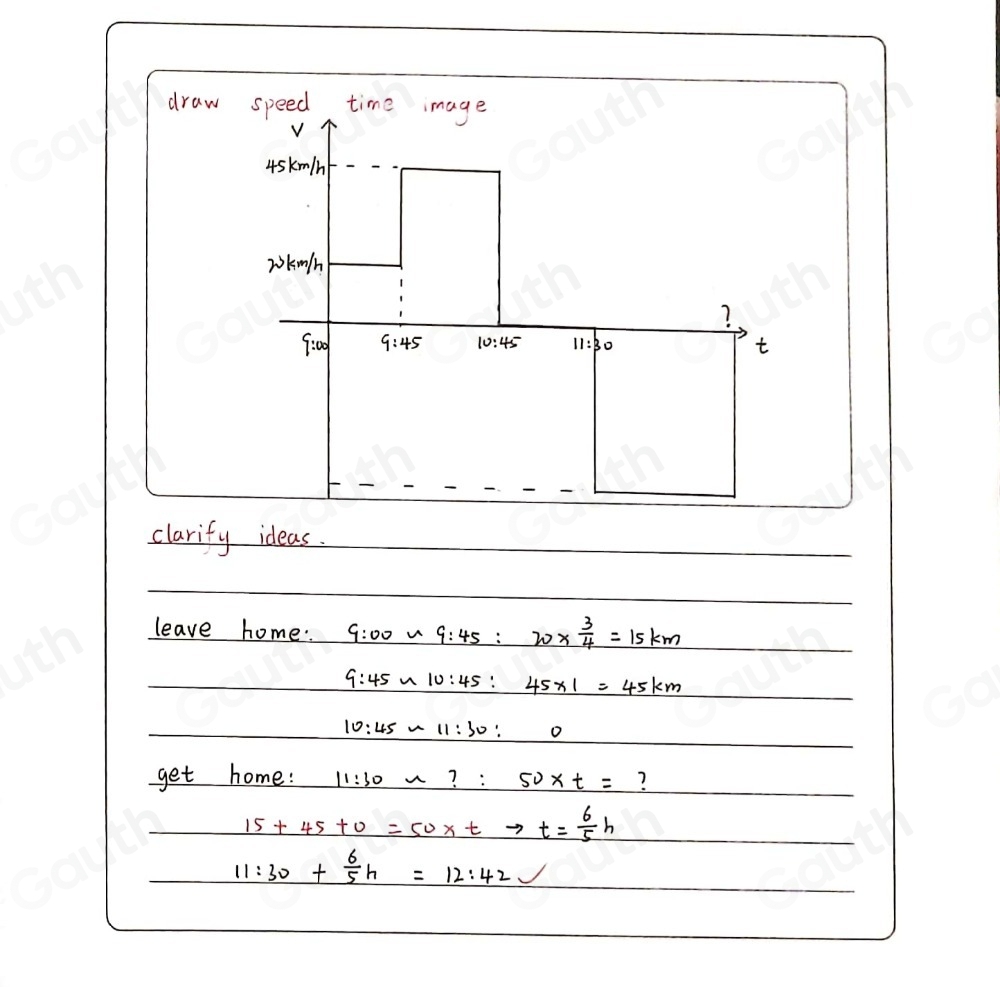 draw speed time image
V
45km/h
20km/h
?
9:00 9:45 10:45 11:30 t
clarify ideas.
leave home: 9:00 ~ 9:45 : 20 × 3/4 = 15km
9:45 ~ 10:45 : 45×1 = 45km
10:45 ~ 11:30 : 0
get home: 11:30 ~ ? : 50 × t = ?
15 + 45 + 0 = 50 × t → t = 6/5 h
11:30 + 6/5 h = 12:42 ✓
Gauth